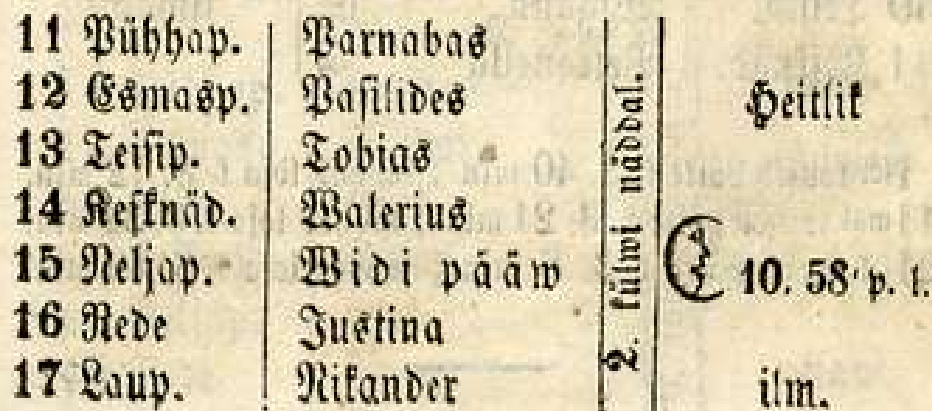 11 Pühhap. Parnabas
12 Esmasp. Pasilides Heitlik
13 Teisip. Tobias
14 Kesknäd. Walerius
15 Neljap. Widi pääw 10. 58' p. l.
16 Rede Justina
17 Laup. Nikander ilm.
2. külwi näddal.